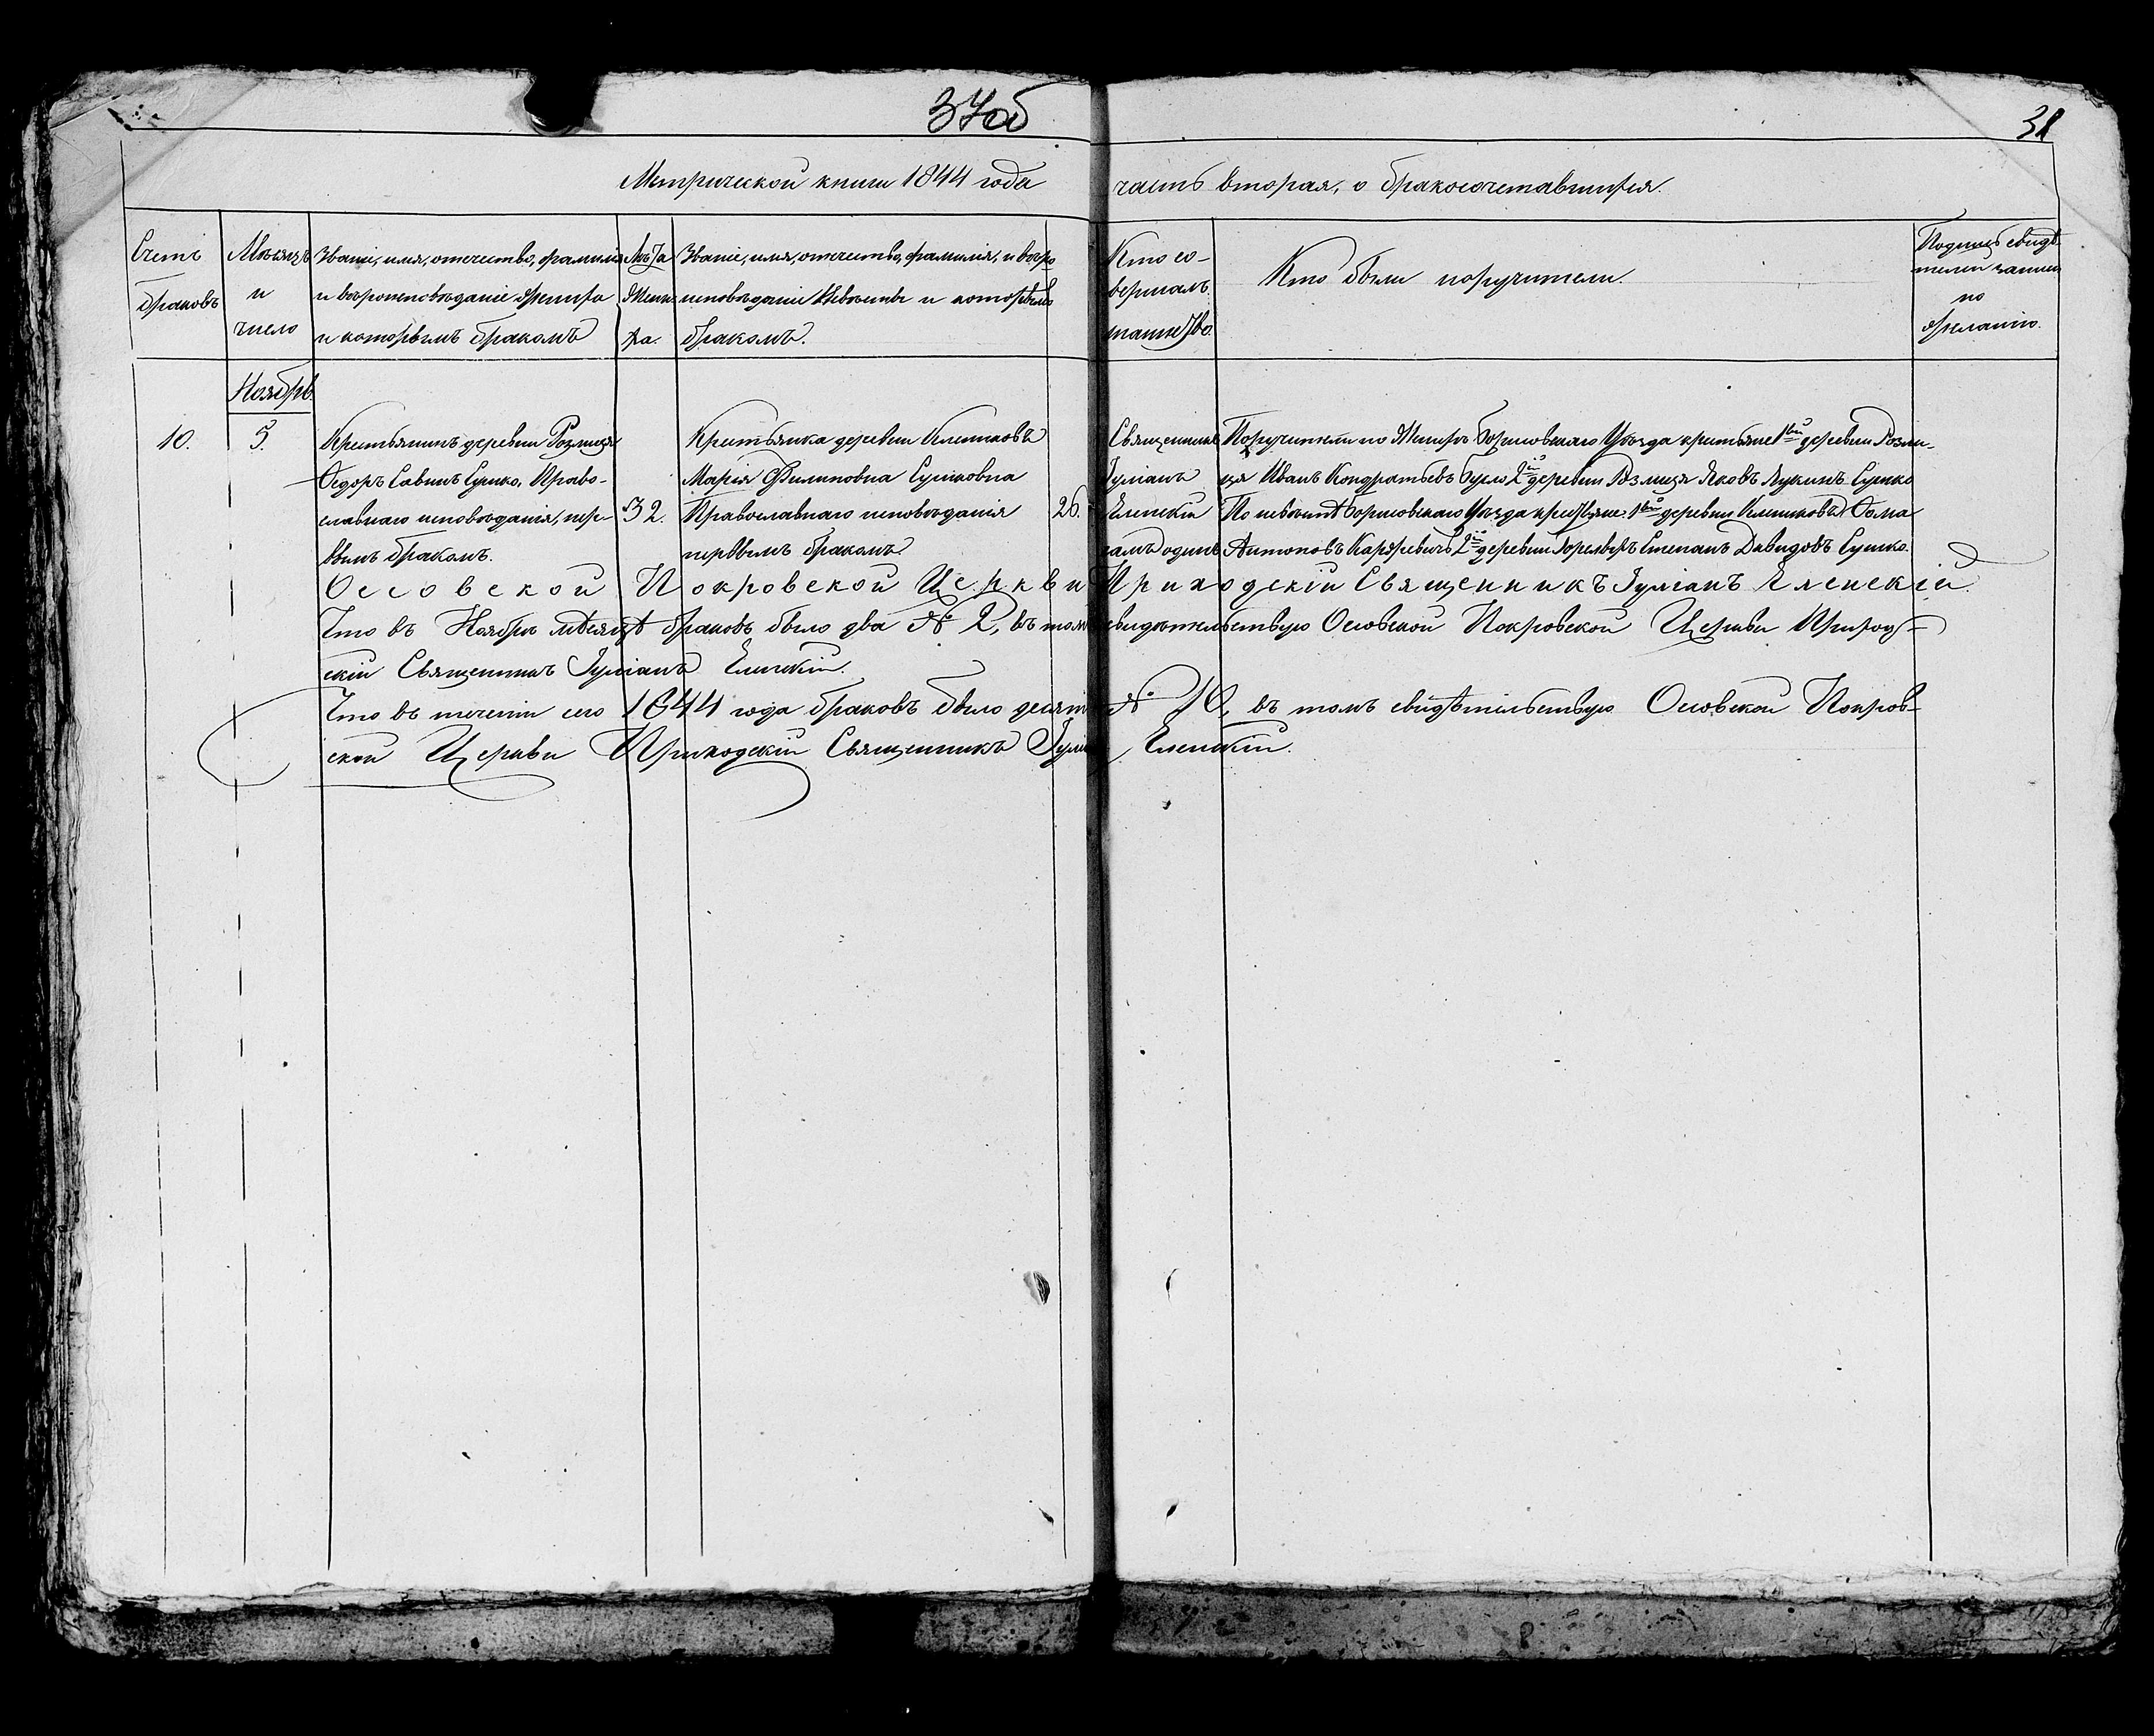 37об
31
Метрической книги 1844 года часть вторая, о бракосочетавшихся.
Счетъ браковъ
Мѣсяцъ и число
Званіе, имя, отечество, фамилія и вѣроисповѣданіе жениха и которымъ бракомъ
Лѣта Жениха.
Званіе, имя, отечество, фамилія, и вѣроисповѣданіе Невѣсты и которымъ бракомъ.
Кто совершалъ таинство.
Кто были поручители.
Подпись свидѣтелей записи по желанію.
Ноябрь
10.
5.
Крестьянинъ деревни Розмица
Ѳедоръ Савинъ Сушко, Право-
славнаго исповѣданія, пер-
вымъ бракомъ.
32.
Крестьянка деревни Клешковъ
Марія Филиповна Сушковна
Православнаго исповѣданія
первымъ бракомъ
26.
Священникъ
Іуліанъ
Еленскій
самъ одинъ
Поручители по Женихѣ Борисовскаго Уѣзда крестьяне 1вый деревни Розми-
ця Иванъ Кондратьевъ Було 2й деревни Розмиця Яковъ Лукинъ Сушко
По невѣстѣ Борисовскаго Уѣзда крестьяне: 1вый деревни Клешковъ Ѳома
Антоновъ 2й деревни Степанъ Давидовъ Сушко.
Оссовской Покровской Церкви Приходскій Священникъ Іуліанъ Еленскій.
Что въ Ноябрѣ мѣсяцѣ браковъ было два № 2, въ томъ свидѣтельствую Осовской Покровской Церкви Приход-
скій Священникъ Іуліанъ Еленскій.
Что въ теченіи сего 1844 года браковъ было десять № 10, въ томъ свидѣтельствую Осовской Покров-
ской Церкви Приходскій Священникъ Іуліанъ Еленскій.